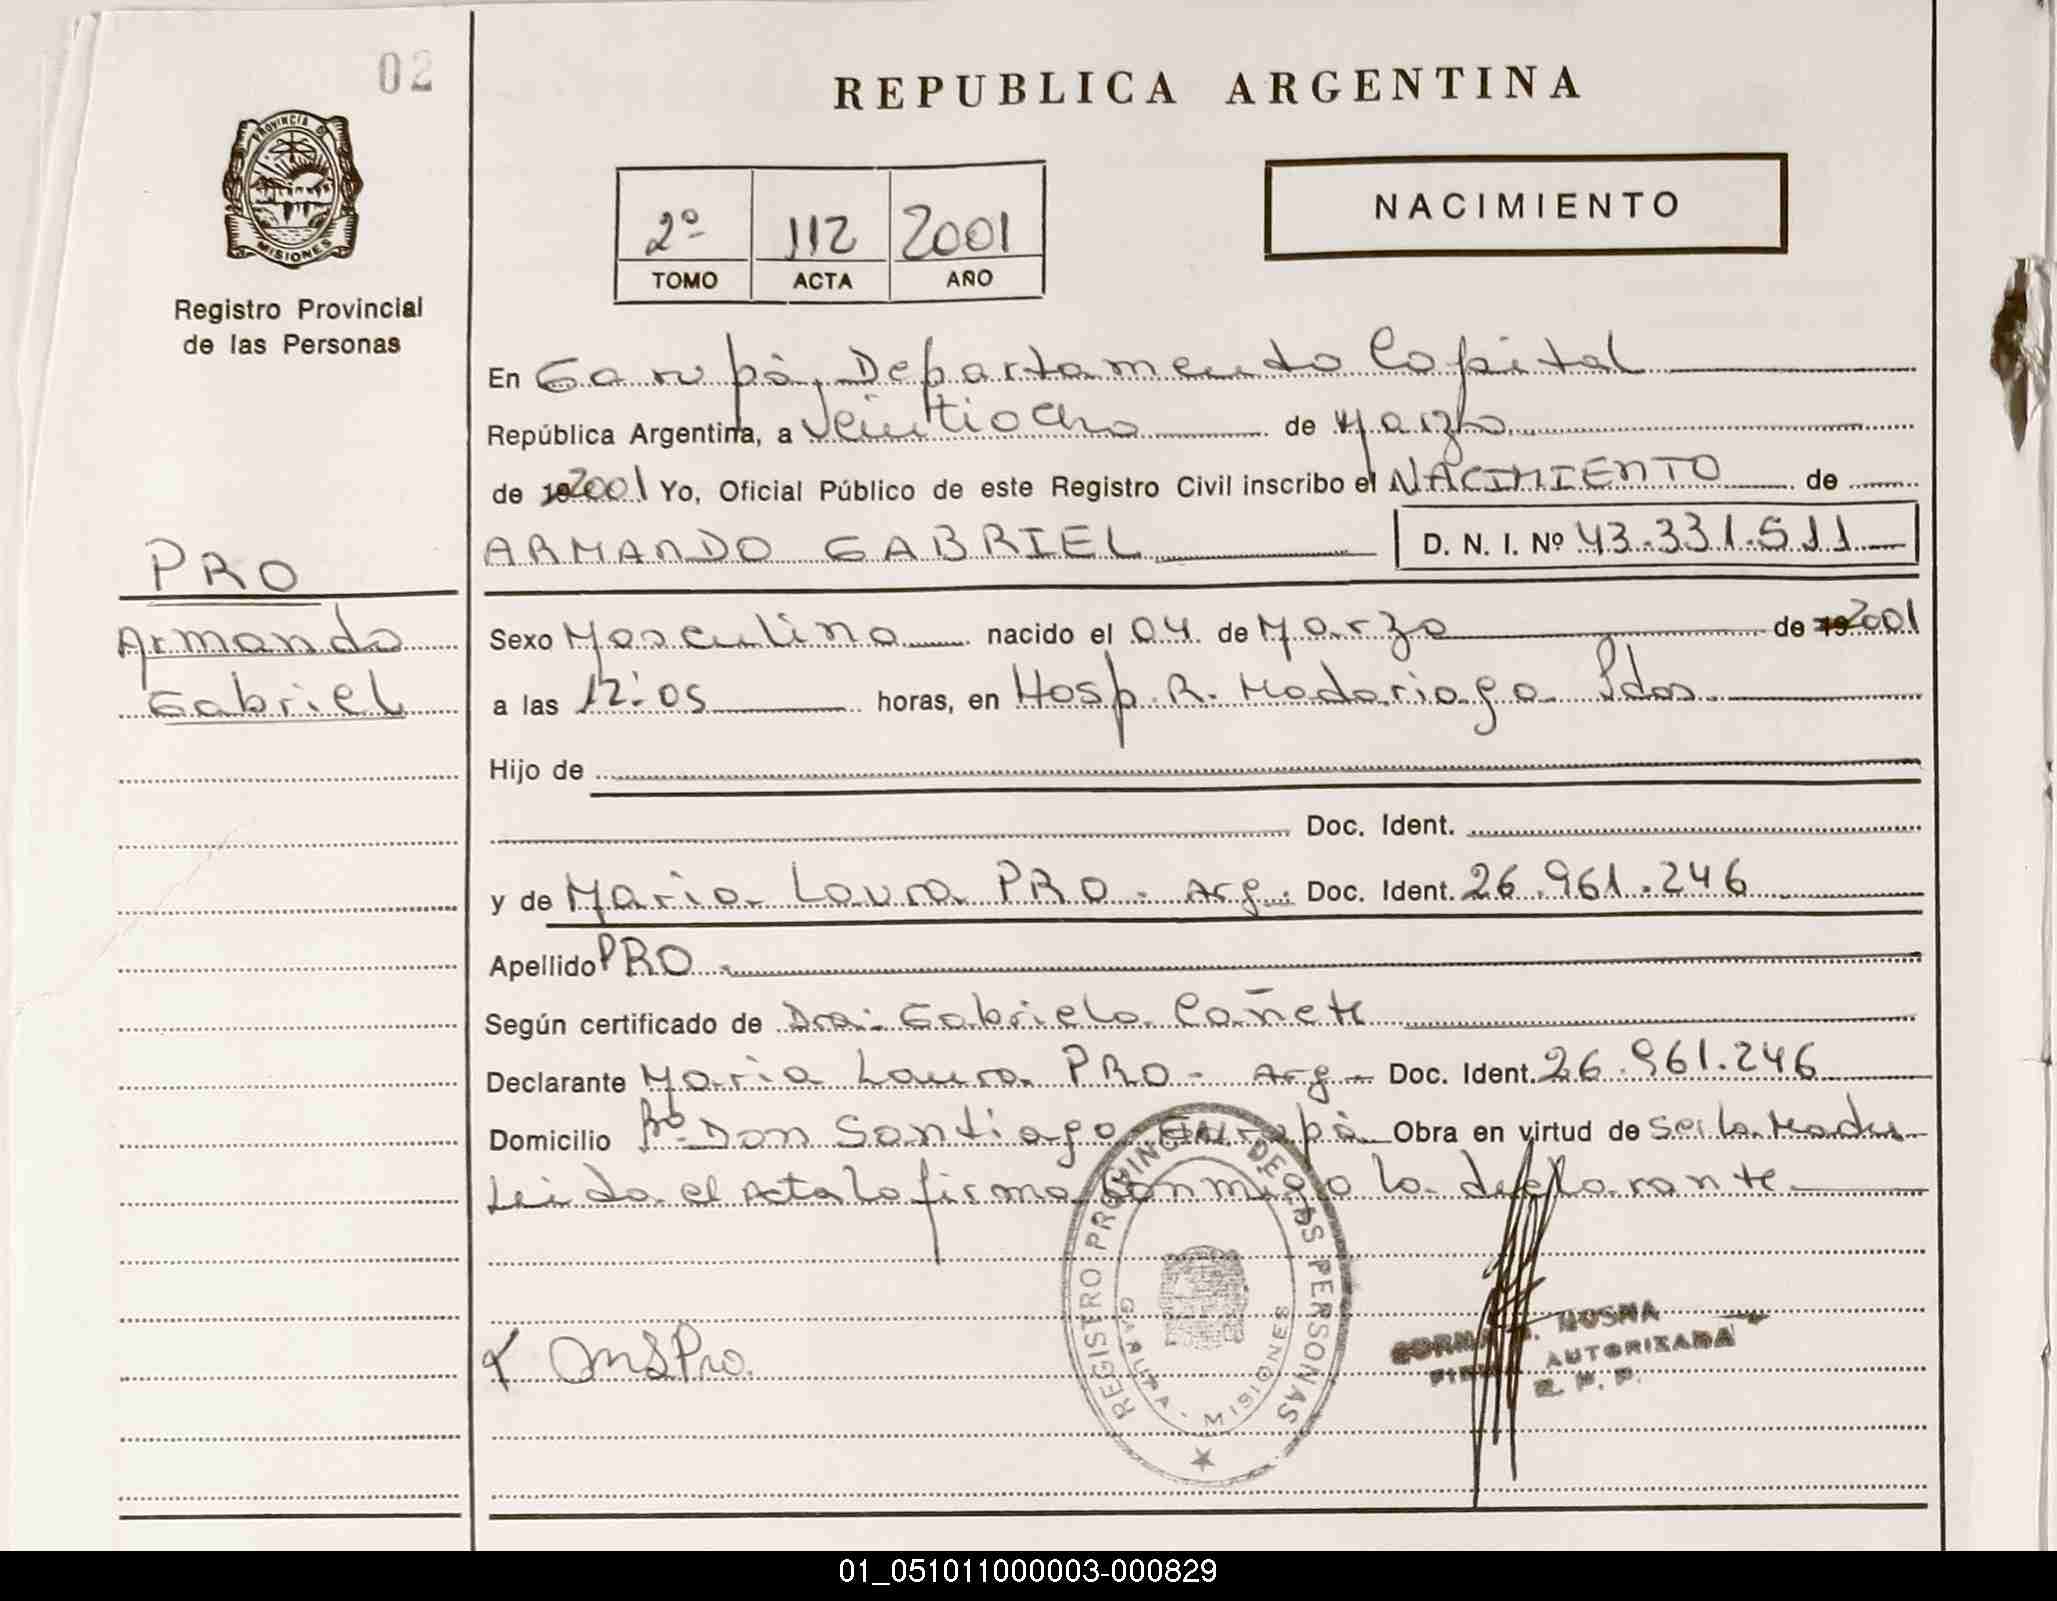 02
REPUBLICA ARGENTINA
PROVINCIA DE
MISIONES
Registro Provincial
de las Personas
2º 112 2001
TOMO ACTA AÑO
NACIMIENTO
En Garupá, Departamento Capital
República Argentina, a Veintiocho de Marzo
de 2001 Yo, Oficial Público de este Registro Civil inscribo el NACIMIENTO de
ARMANDO GABRIEL D. N. I. Nº 43.331.511
PRO
Armando
Gabriel
Sexo Masculino nacido el 04 de Marzo de 2001
a las 12:05 horas, en Hosp. R. Madariaga Pdas.
Hijo de
Doc. Ident.
y de Maria Laura PRO - Arg. Doc. Ident. 26.961.246
Apellido PRO.
Según certificado de Dra. Gabriela Cañete
Declarante Maria Laura PRO - Arg - Doc. Ident. 26.961.246
Domicilio Bº Don Santiago Garupá Obra en virtud de ser la Madre
Leida el Acta la firma conmigo la declarante
REGISTRO PROVINCIAL DE LAS PERSONAS
GARUPA - MISIONES
AUTORIZADA
R. P. P.
01_051011000003-000829